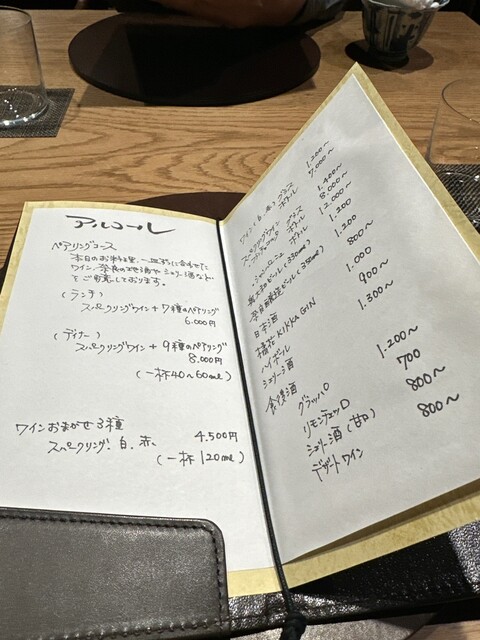 アルコール
ペアリングコース
本日のお料理、一皿ずつに合わせた
ワイン、奈良の地酒や、シェリー酒など
をご用意しております。
(ランチ)
スパークリングワイン + 7種のペアリング
6.000円
(ディナー)
スパークリングワイン + 9種のペアリング
8.000円
(一杯40~60ml)
ワインおまかせ3種 4.500円
スパークリング、白、赤、
(一杯120ml)
ワイン(白、赤) グラス 1.200~
ボトル 7.000~
スパークリングワイン グラス 1.400~
ボトル 8.000~
シャンパーニュ ボトル 12.000~
ビール(330ml) 1.200
奈良醸造ビール(350ml) 1.200
日本酒 800~
橘花 KIKKA GIN 1.000
ハイボール 900~
シェリー酒 1.300~
食後酒
グラッパ 1.200~
リモンチェッロ 700
シェリー酒(甘口) 800~
デザートワイン 800~